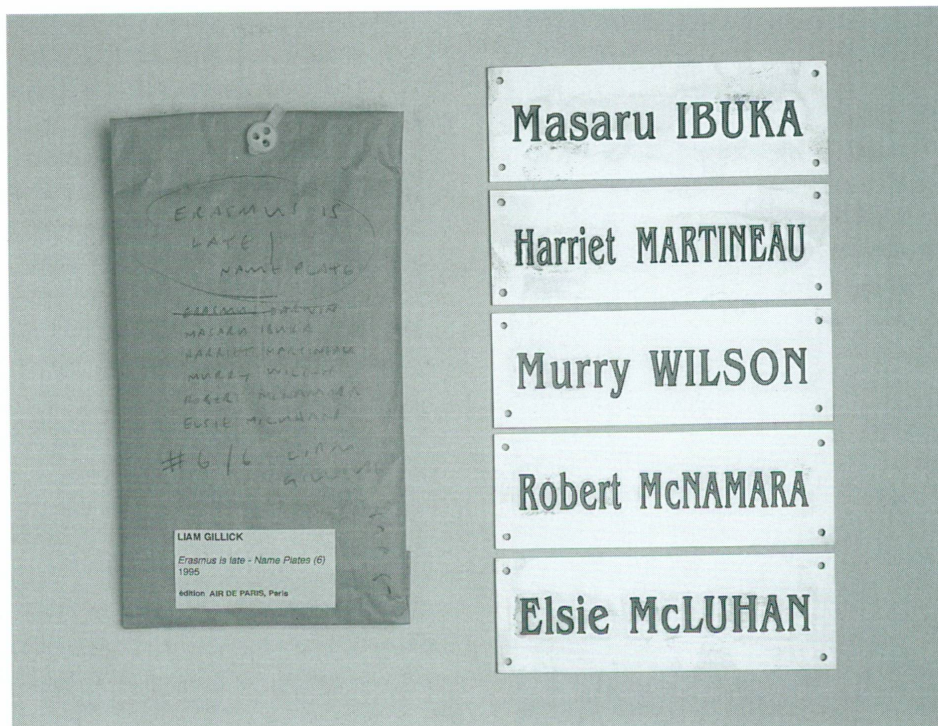 ERASMUS IS
LATE
NAME PLATES
ERASMUS DARWIN
MASARU IBUKA
HARRIET MARTINEAU
MURRY WILSON
ROBERT McNAMARA
ELSIE McLUHAN
#6/6 LIAM
GILLICK
LIAM GILLICK
Erasmus is late - Name Plates (6)
1995
édition AIR DE PARIS, Paris
Masaru IBUKA
Harriet MARTINEAU
Murry WILSON
Robert McNAMARA
Elsie McLUHAN